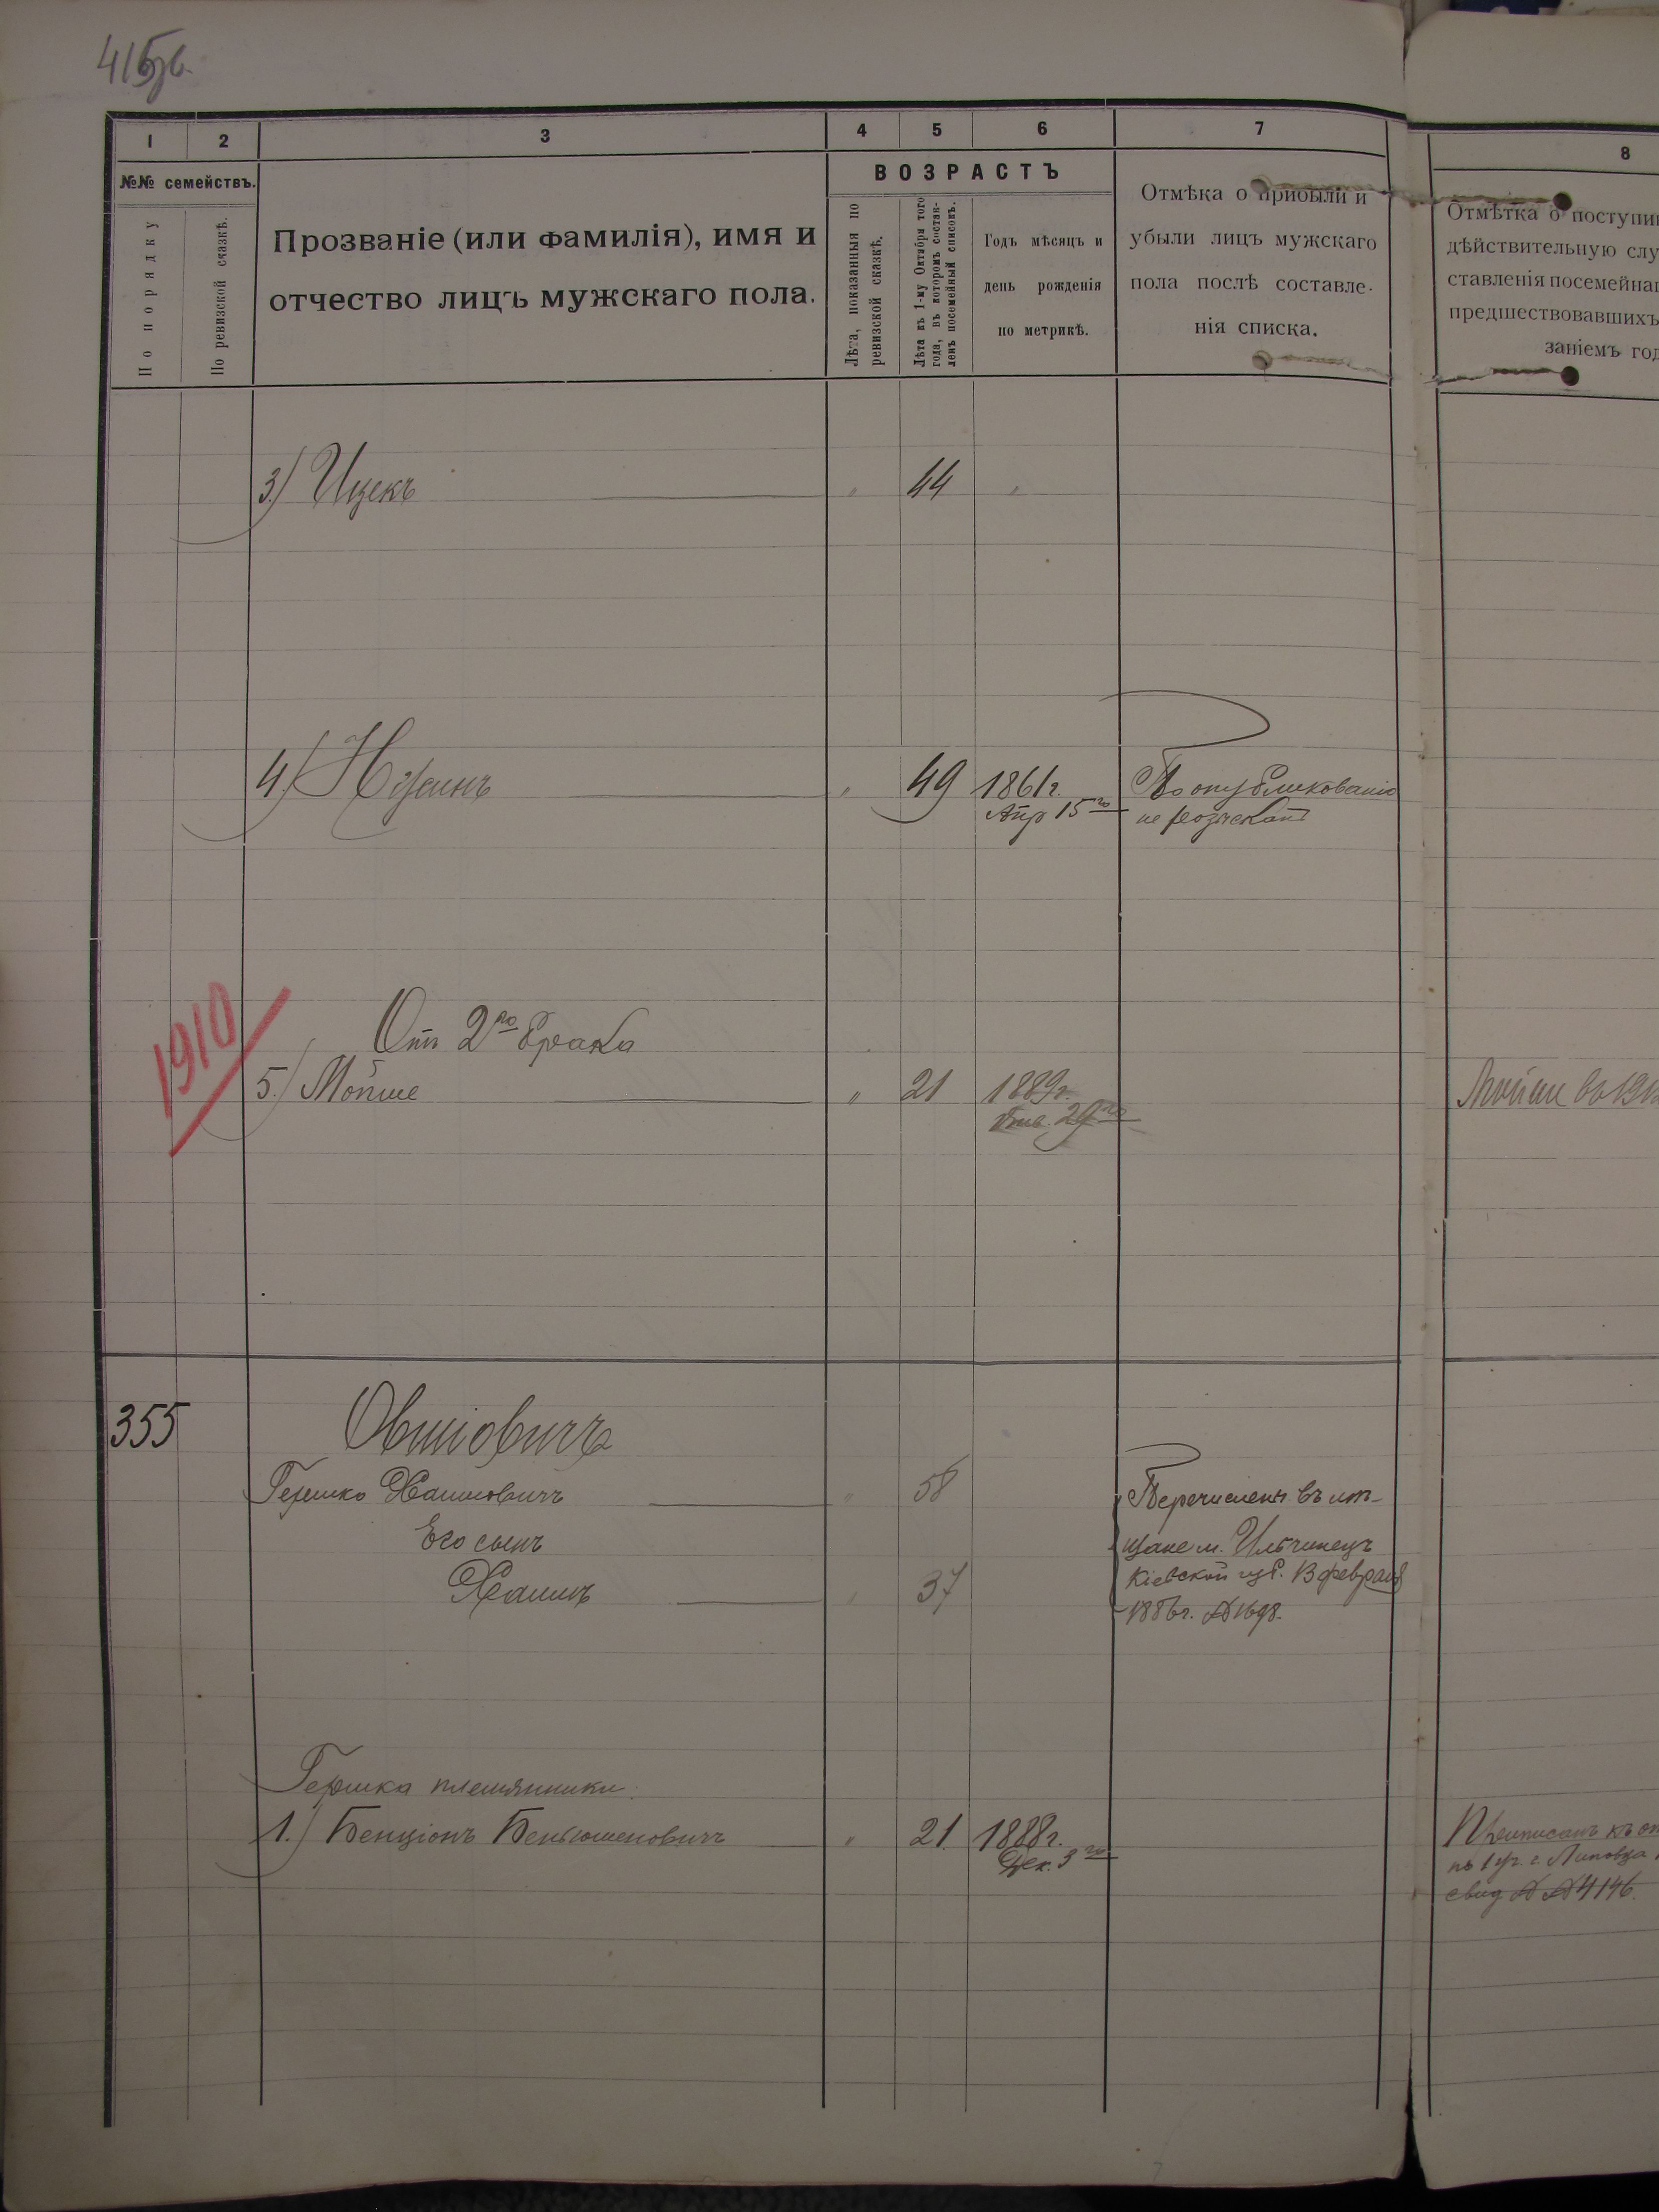 415об.
1 2 3 4 5 6 7 8
№№ семействъ.
По порядку
По ревизской сказкѣ.
Прозваніе (или фамилія), имя и
отчество лицъ мужскаго пола.
ВОЗРАСТЪ
Лѣта, показанныя по
ревизской сказкѣ.
Лѣта къ 1-му Октября того
года, въ которомъ состав-
ленъ посемейный списокъ.
Годъ мѣсяцъ и
день рожденія
по метрикѣ.
Отмѣка о прибыли и
убыли лицъ мужскаго
пола послѣ составле-
нія списка.
Отмѣтка о поступи
дѣйствительную слу
ставленія посемейнаг
предшествовавшихъ
заніемъ год
3.) Ицекъ " 44 "
4.) Нухимъ " 49 1861г.
Апр 15го
По опубликованію
не розысканъ
1910
Отъ 2го брака
5.) Мойше " 21 1889г.
Янв. 29го
Мойше въ 191
355
Овшіовичъ
Гершко Хаимовичъ " 58
Его сынъ
Хаимъ " 37
Перечислены въ мѣ-
щане м. Ильинецъ
Кіевской губ. 13 февраля
1886г. №1698.
Гершка племянники:
1.) Бенціонъ Беньюменовичъ " 21. 1888г.
Дек. 3го
Приписанъ къ
по 1 уч. г. Липовца
свид. № 4146.